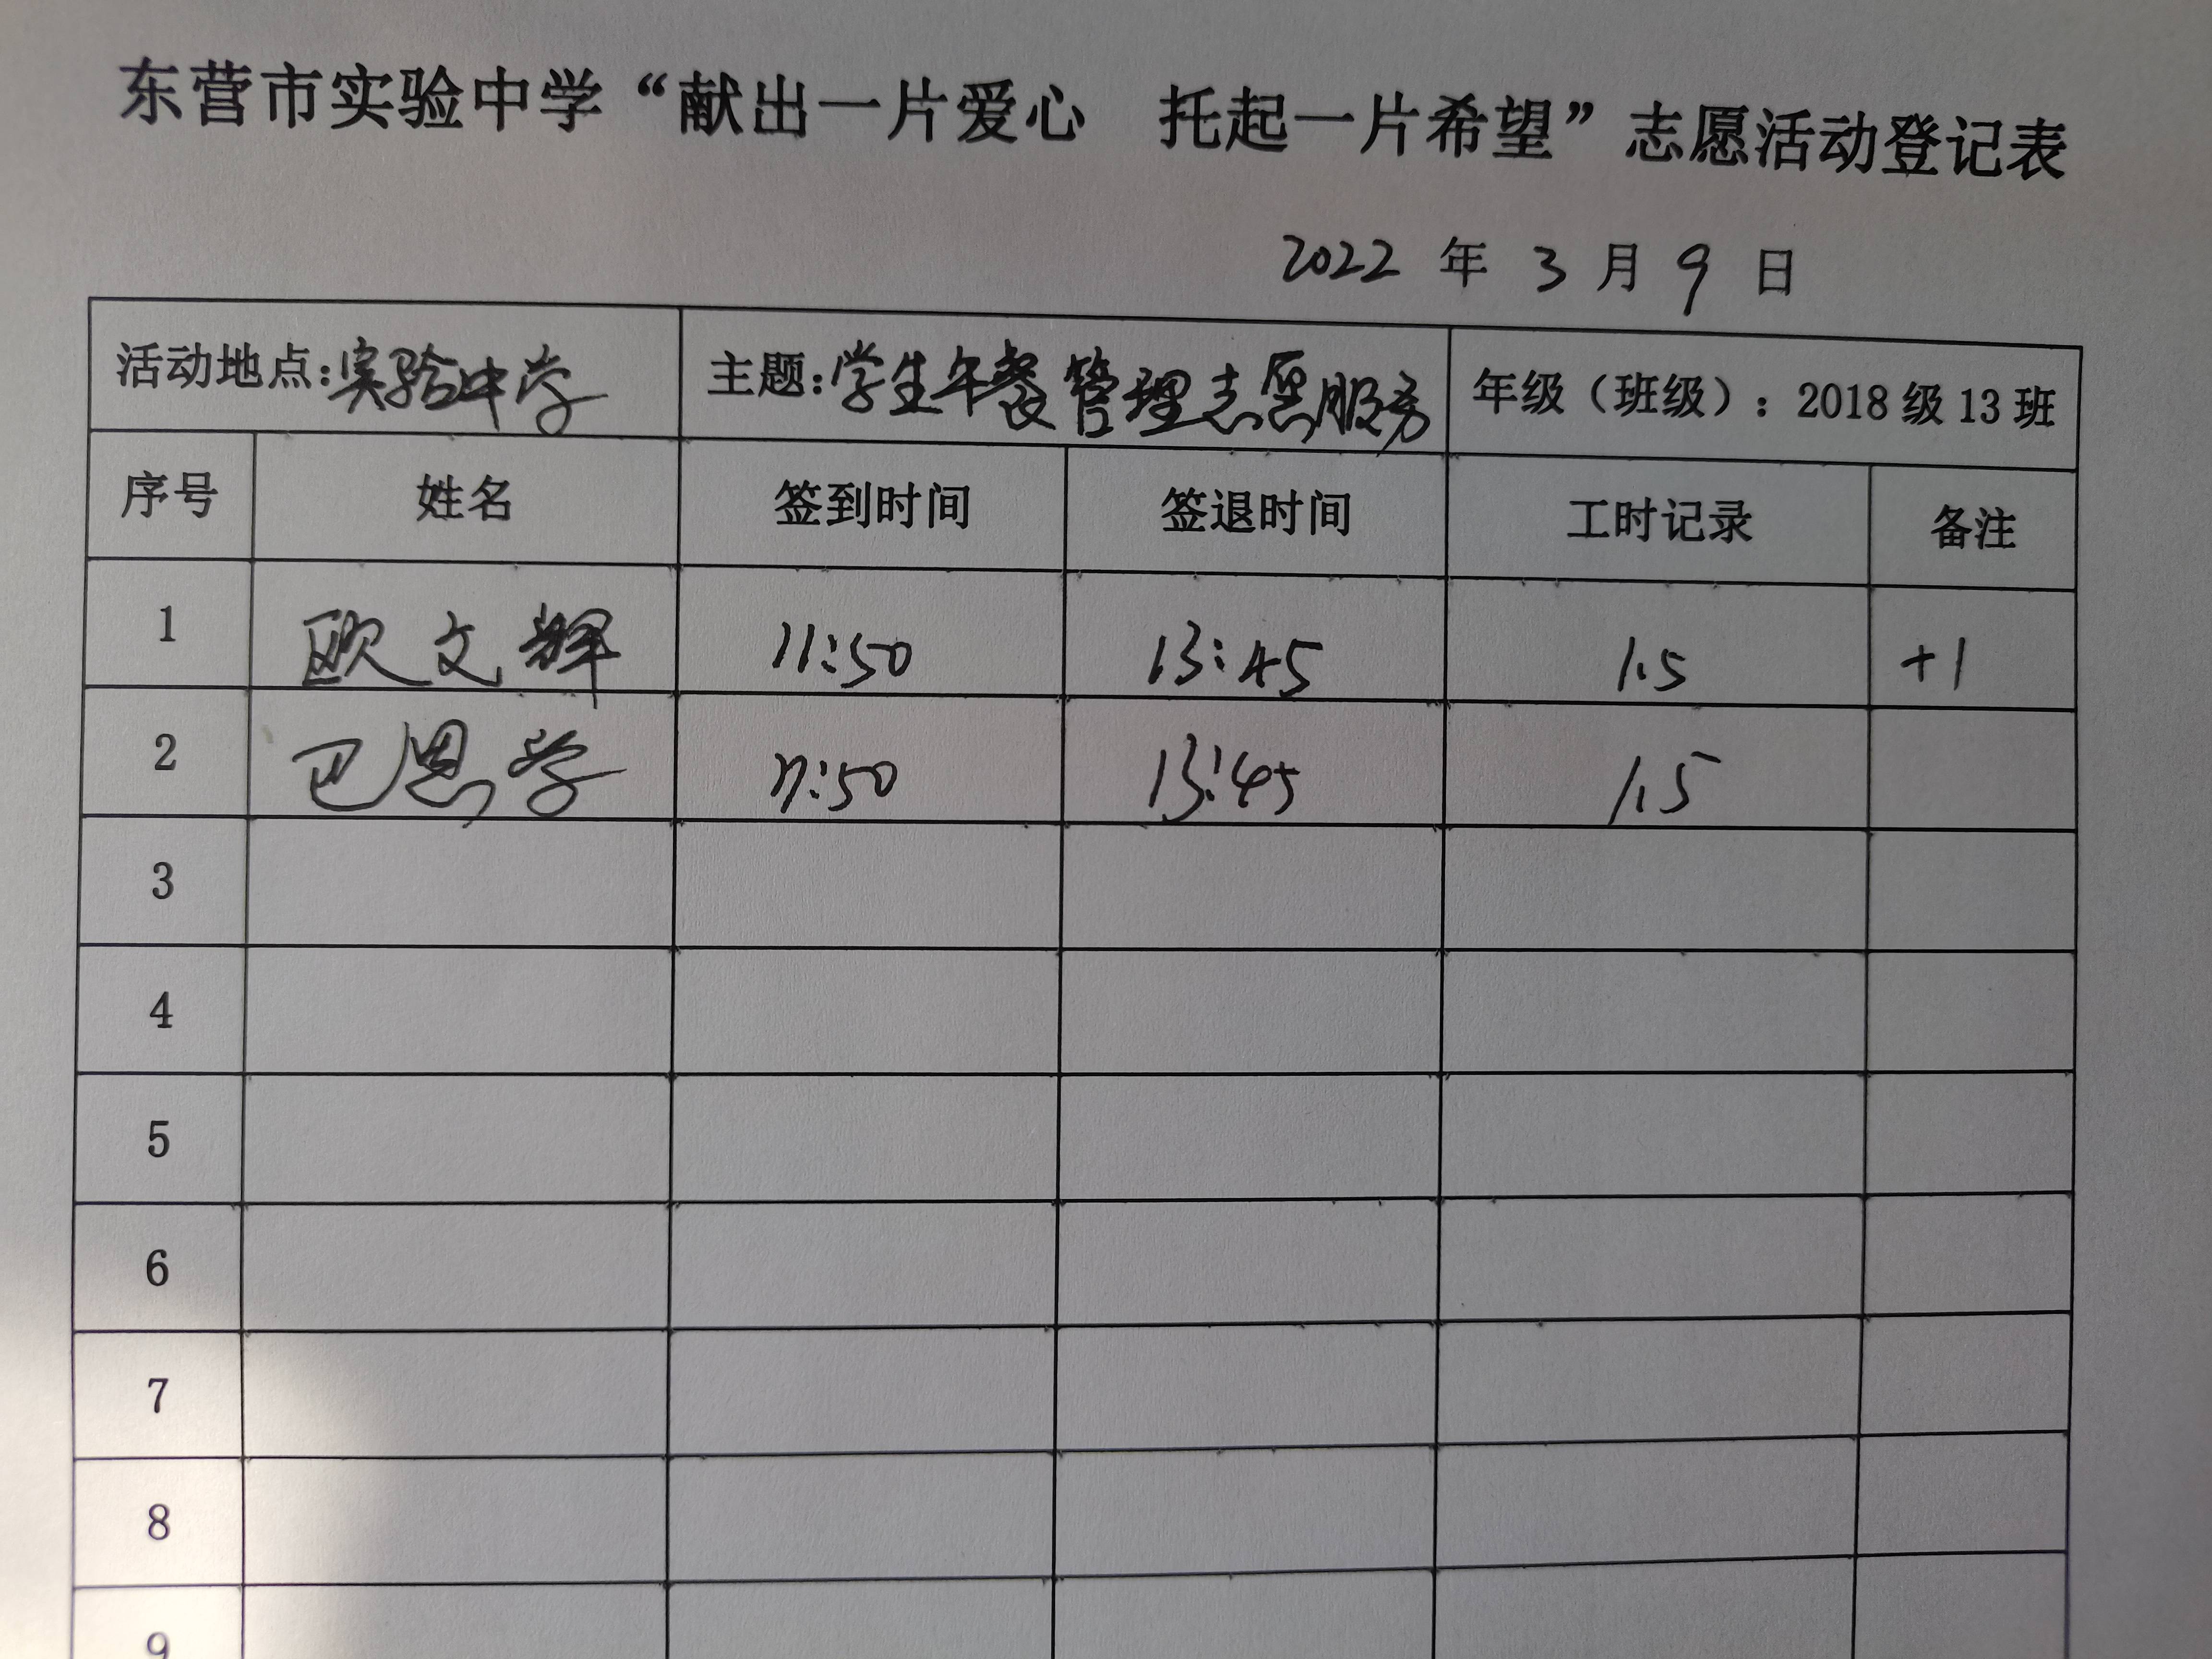 东营市实验中学“献出一片爱心 托起一片希望”志愿活动登记表
2022 年 3 月 9 日
活动地点:实验中学 主题:学生午餐管理志愿服务 年级（班级）：2018级13班
序号 姓名 签到时间 签退时间 工时记录 备注
1 欧文辉 11:50 13:45 1.5 +1
2 巴恩学 11:50 13:45 1.5
3
4
5
6
7
8
9